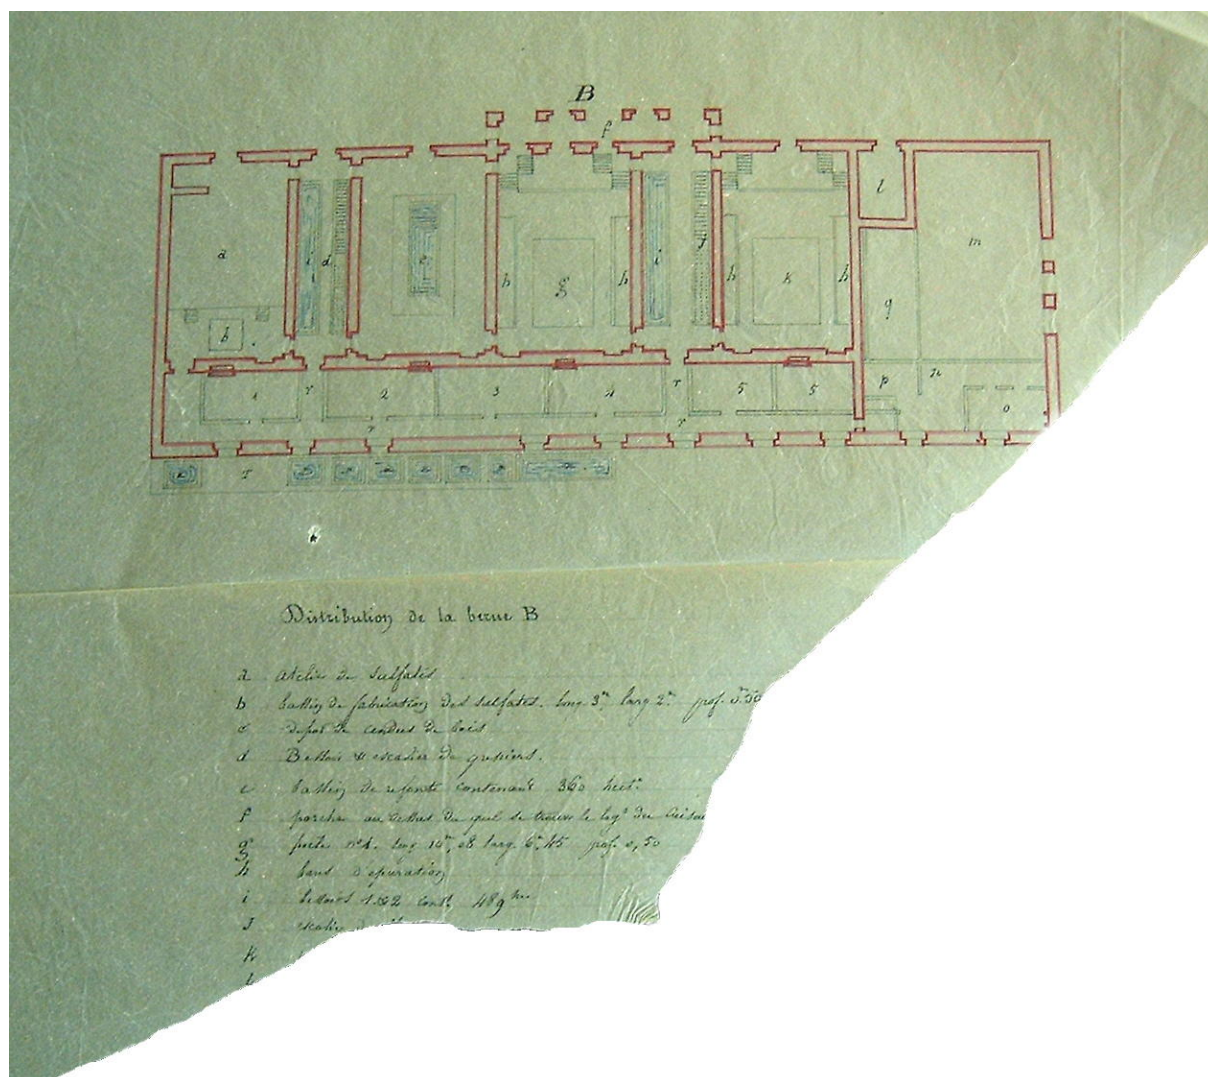 B
f
l
a
i
d
e
h
g
h
i
J
h
K
h
m
q
b
1
r
2
3
4
r
5
5
p
n
o
r
r
r
Distribution de la berne B
a atelier de sulfates
b bassin de fabrication des sulfates. long 3m larg 2m prof. 0m.50
c depot de cendres de bois
d Bessoir & escalier de greniers.
e bassin de refonte contenant 360 hect.
f porche au dessus du quel se trouve le log.t du
g poële n° 1. long 14m,08 larg. 6m,45 prof. 0,50
h bans d'épuration
i bessoirs 1 & 2 cont. 489 hec
J escalier
K
L